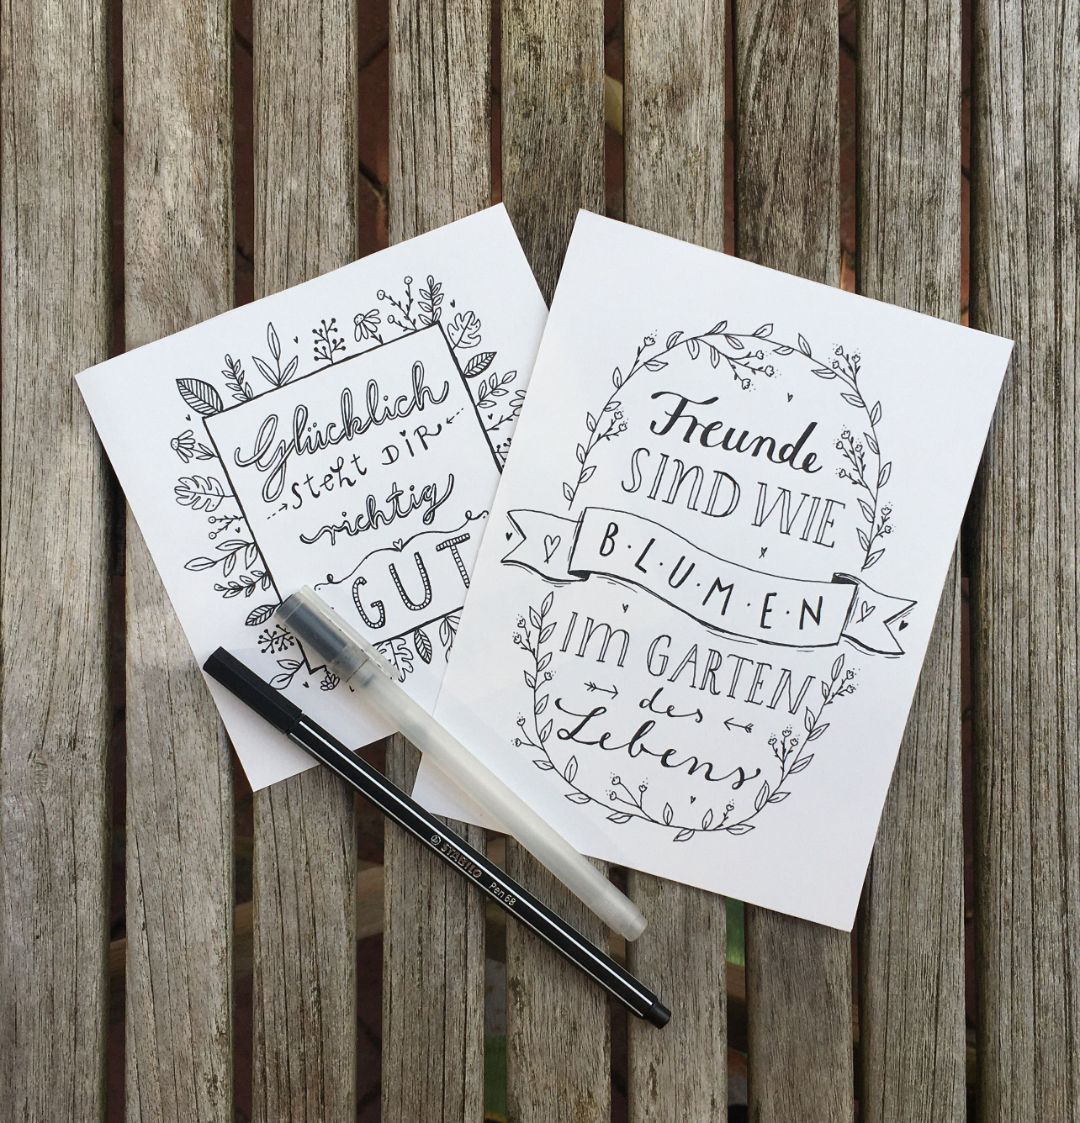 Glücklich
steht DIR
richtig
GUT
Freunde
SIND WIE
B·L·U·M·E·N
IM GARTEN
des
Lebens
STABILO Pen 68